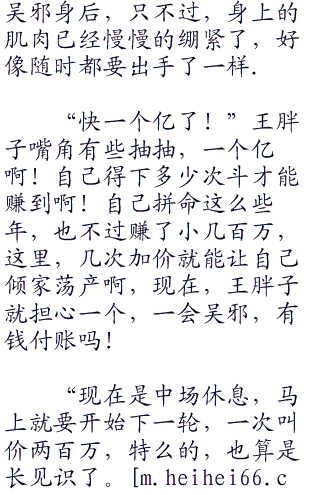 吴邪身后，只不过，身上的
肌肉已经慢慢的绷紧了，好
像随时都要出手了一样.
“快一个亿了！”王胖
子嘴角有些抽抽，一个亿
啊！自己得下多少次斗才能
赚到啊！自己拼命这么些
年，也不过赚了小几百万，
这里，几次加价就能让自己
倾家荡产啊，现在，王胖子
就担心一个，一会吴邪，有
钱付账吗！
“现在是中场休息，马
上就要开始下一轮，一次叫
价两百万，特么的，也算是
长见识了。[m.heihei66.c